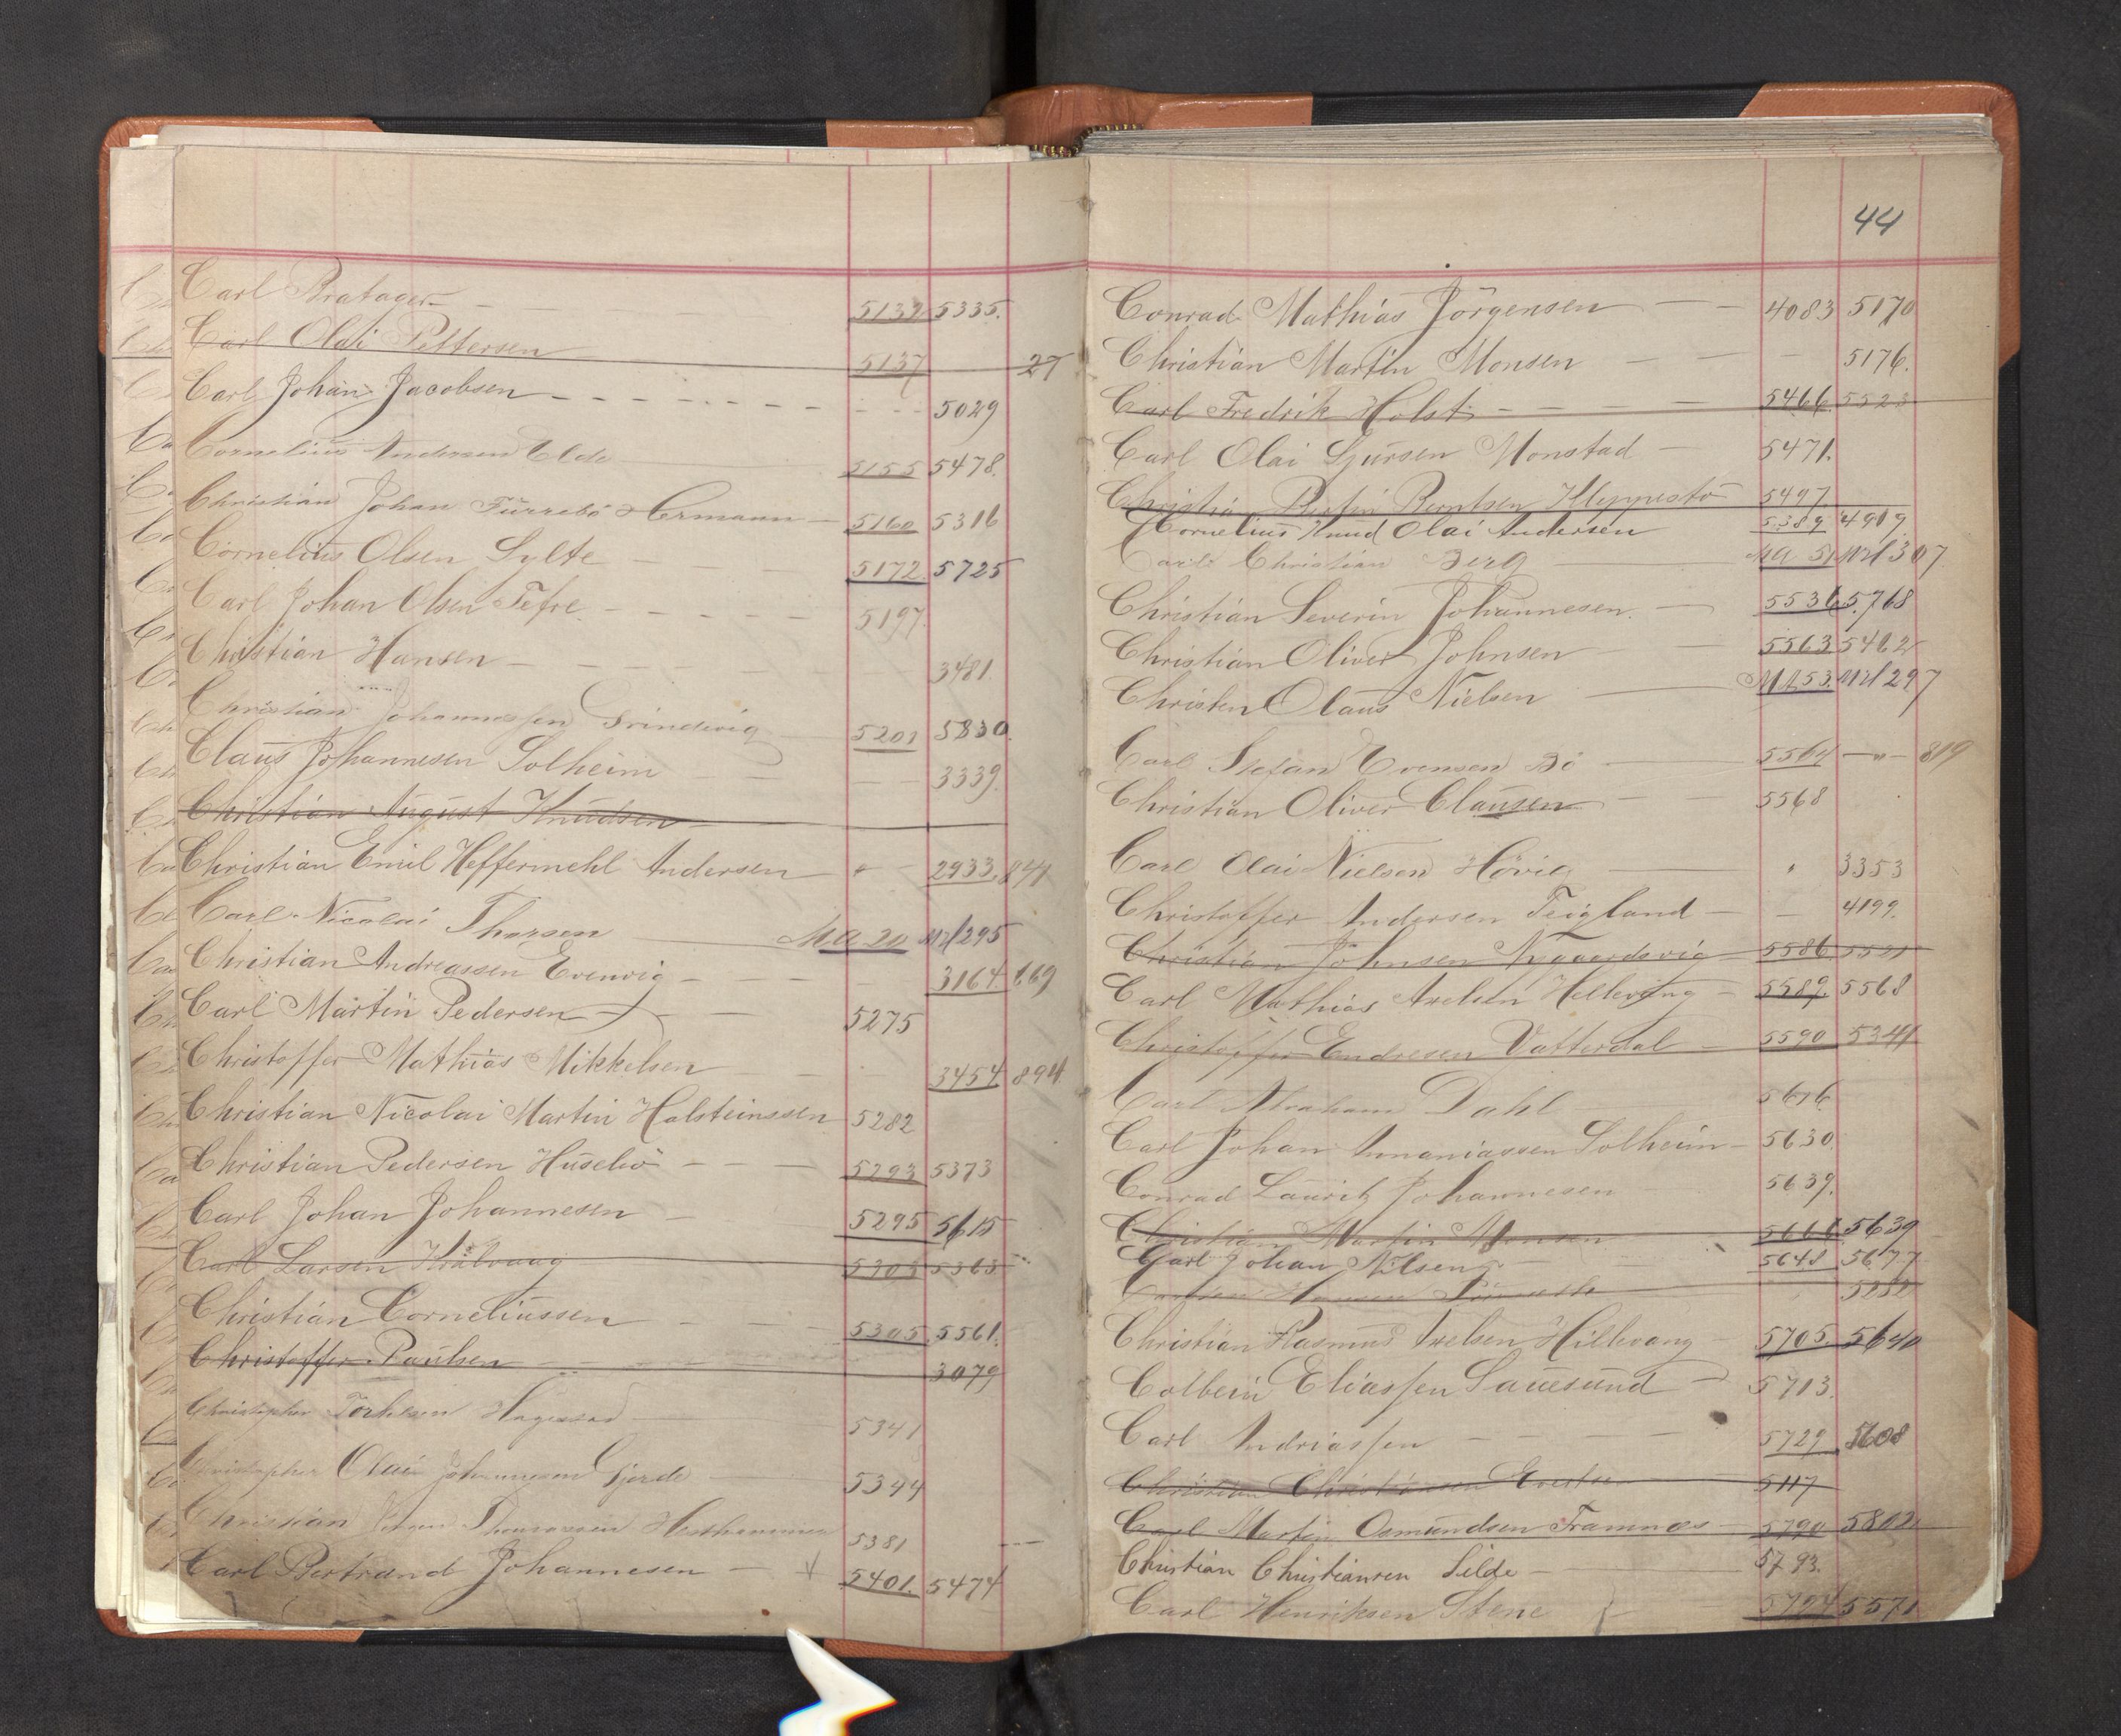 Carl Bratager - 5132 5335.
Carl Olai Pettersen 5137 27
Carl Johan Jacobsen - - - - - - - - - 5029
Cornelius Andersen Elde 5155 5478.
Christian Johan Fürrebö Hermann - 5160 5316
Cornelius Olsen Sylte - - - 5172 5725
Carl Johan Olsen Tefre - - - - 5197.
Christian Hansen - - - - 3481.
Christian Johannessen 5201 5830
Claus Johannesen Solheim - - - - 3339.
Christian August Knudsen
Christian Emil Heffermehl Andersen 2933. 844
Carl Nicolai Thorsen MA 20 M2/295
Christian Andreassen Evenvig - - - 3164 669
Carl Martin Pedersen - - 5275
Christoffer Mathias Mikkelsen - - - 3454 894
Christian Nicolai Martin Holsteinssen 5282
Christian Pedersen Husebö - - - 5293 5373
Carl Johan Johannesen - 5295 5615
Carl Larsen Kråkvaag 5303 5363
Christian Corneliussen - - - 5305 5561.
Christoffer Paulsen - - - 3079
Christopher Torkelsen Hagestad 5341
Christopher Olai Johannesen Gjerde 5344
Christian Thomassen 5381
Carl Bertrand Johannesen - 5401. 5474
44
Conrad Mathias Jörgensen - - 4083 5170
Christian Martin Monsen - - - 5176.
Carl Fredrik Holst - - - - 5466. 5523
Carl Olai Sjursen Monstad - 5471.
Christian Bertin Berntsen Kleppestö 5497
Cornelius Knud Olai Andersen 5389 4919.
Carl Christian Berg MA 51 M2/307
Christian Severin Johannesen. - 5536 5768
Christian Oliver Johnsen - - 5563 5462
Christen Olaus Nielsen MA 53. M2/297
Carl Stefan Evensen Bö 5564 -"- 819
Christian Oliver Clausen - - 5568
Carl Olai Nielsen Hövig 3353
Christoffer Andersen Teigland - - 4199.
Christian Johnsen Nygaardsvig 5586. 5521
Carl Mathias Axelsen Hellevang - 5589. 5568
Christoffer Endresen Vatterdal - 5590 5341
Carl Abraham Dahl 5616
Carl Johan Annaniassen Solheim - 5630.
Conrad Lauritz Johannesen - 5639.
Christian Martin Monsen 5666 5639
Carl Johan Nilsen - 5648 5677
Hansen 5252
Christian Rasmus Axelsen Hillevang - 5705. 5640
Colbein Eliassen Sauesund - 5713.
Carl Andriassen - - - - 5729 5608
Christian Christiansen Evertsen 5117
Carl Martin Osmundsen Framnæs - 5790 5802
Christian Christiansen Silde - 5793.
Carl Henriksen Stene - 5794 5571